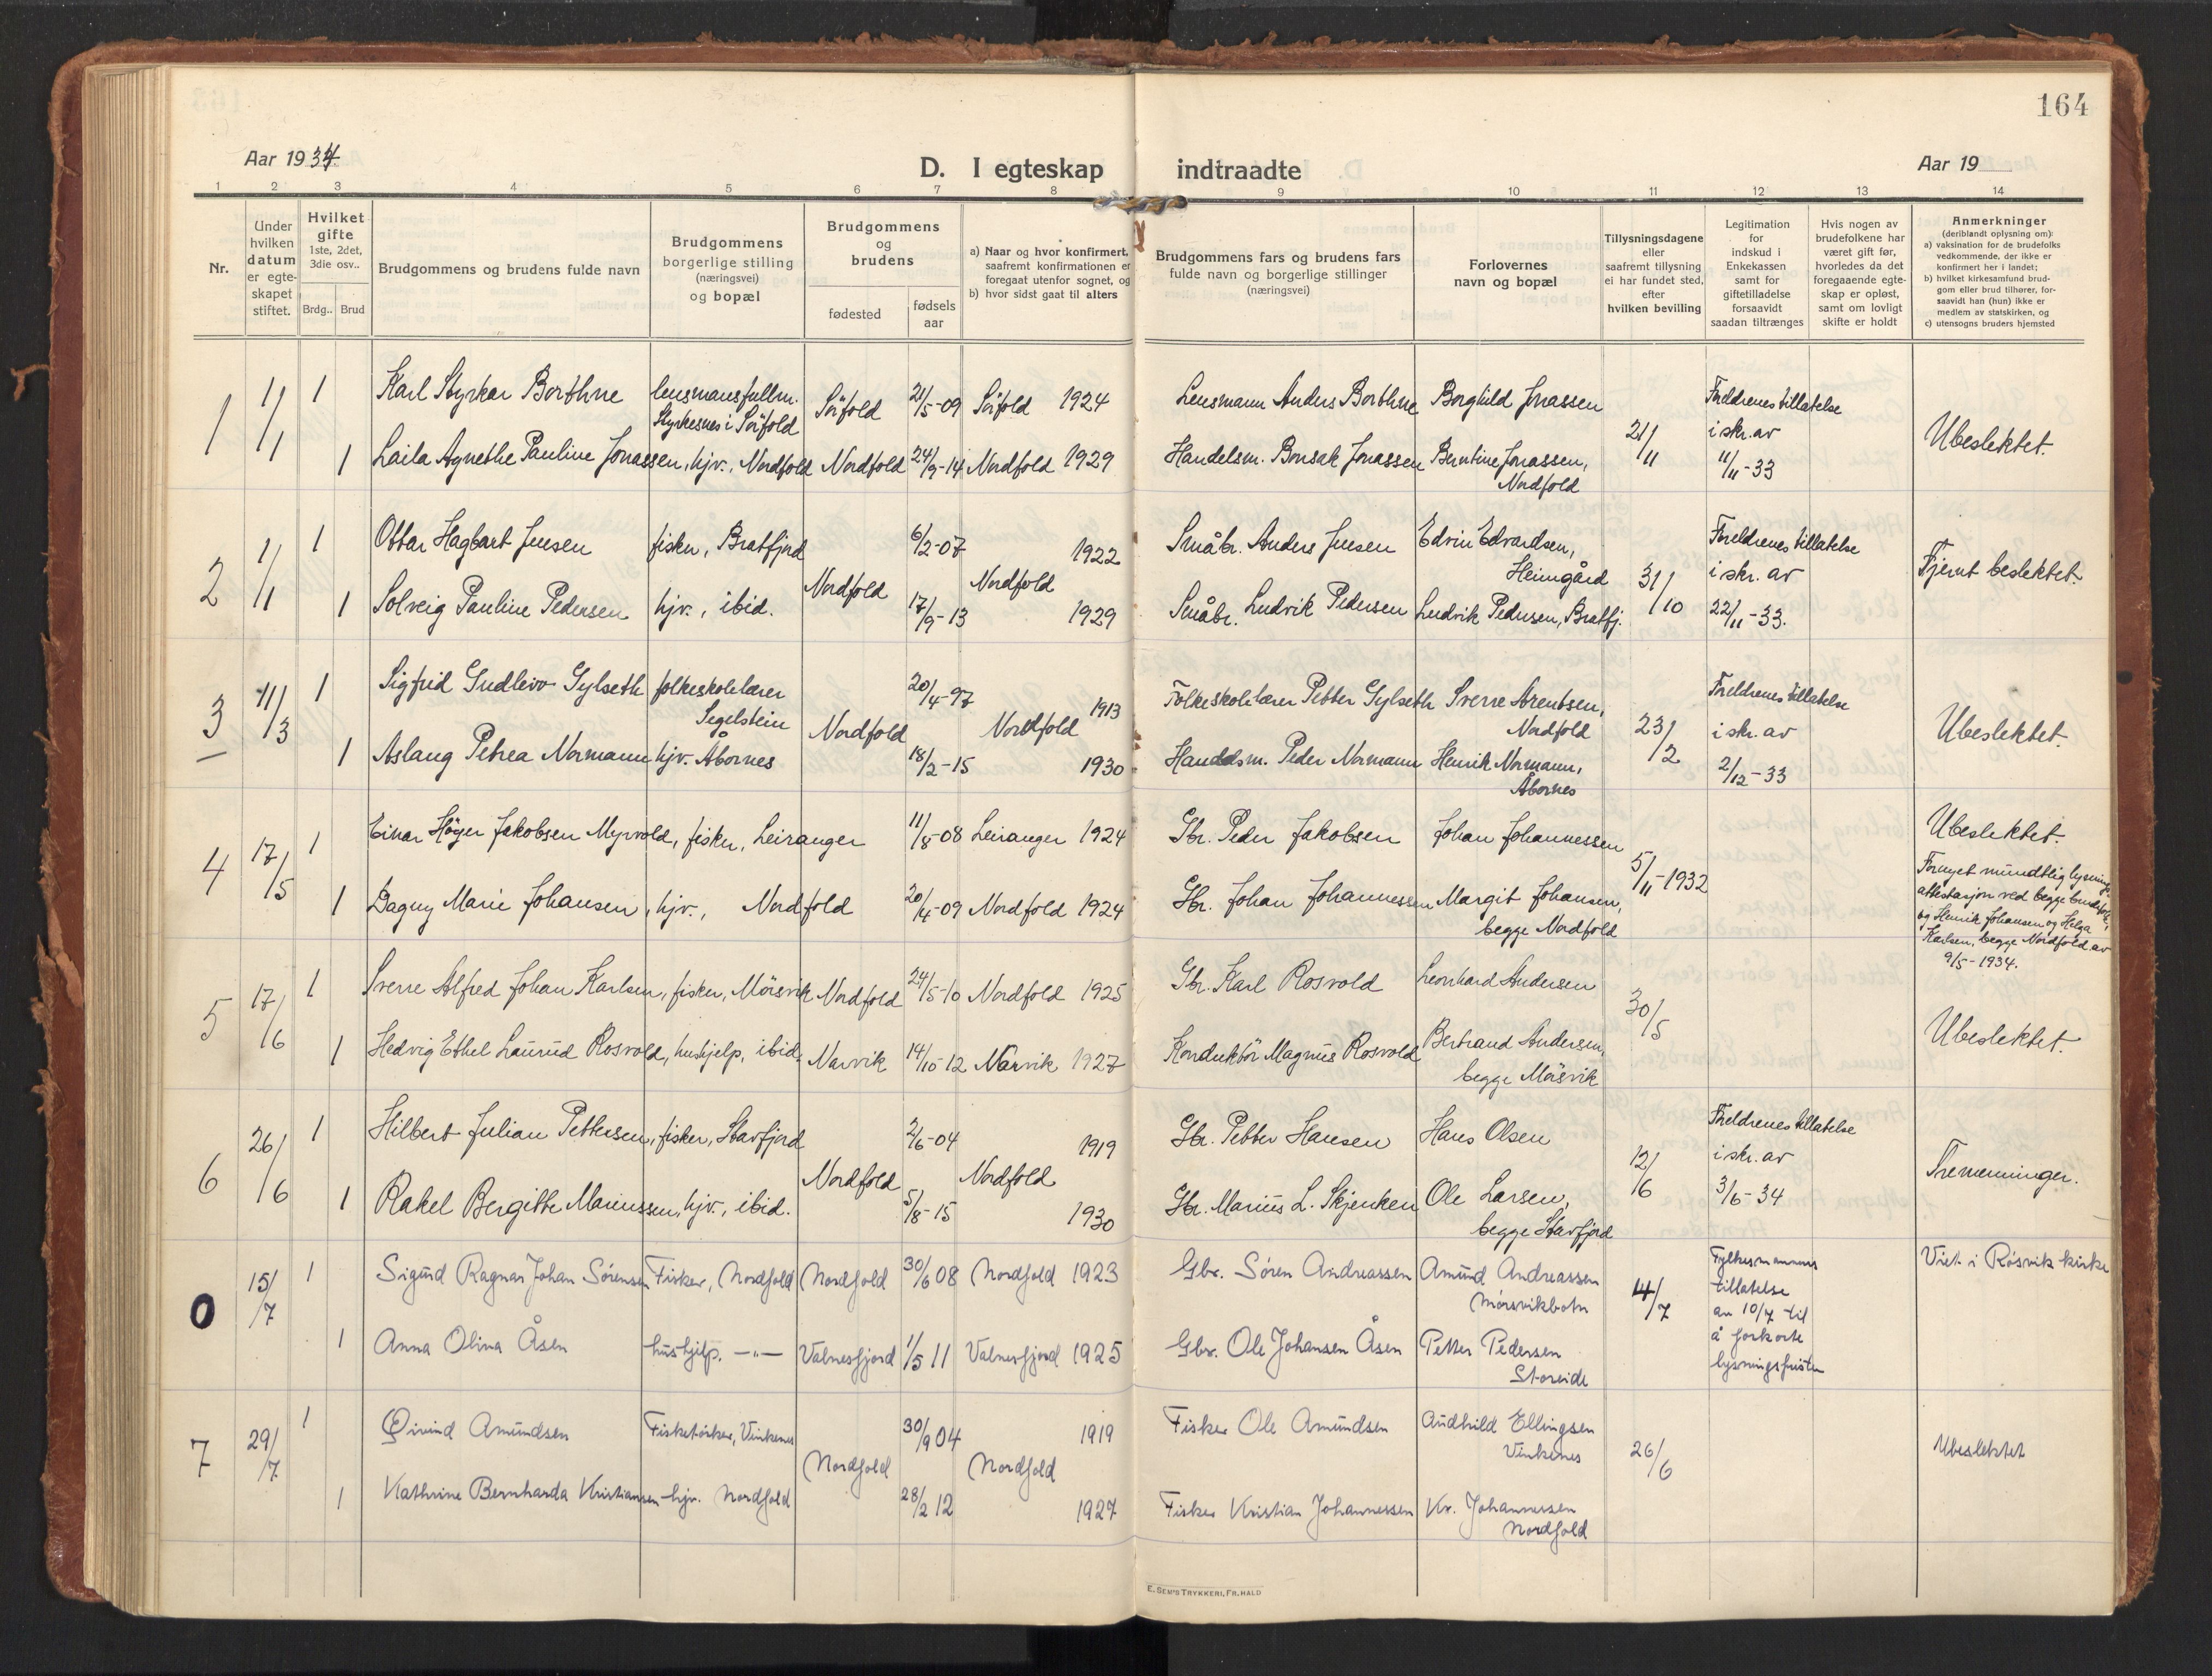 164
Aar 1934
D. I egteskap indtraadte
Aar 19
1 2 3 4 5 6 7 8 9 10 11 12 13 14
Nr.
Under hvilken datum er egte-skapet stiftet.
Hvilket gifte 1ste, 2det, 3die osv..
Brdg.. Brud
Brudgommens og brudens fulde navn
Brudgommens borgerlige stilling (næringsvei) og bopæl
Brudgommens og brudens
fødested
fødsels aar
a) Naar og hvor konfirmert, saafremt konfirmationen er foregaat utenfor sognet, og
b) hvor sidst gaat til alters
Brudgommens fars og brudens fars fulde navn og borgerlige stillinger (næringsvei)
Forlovernes navn og bopæl
Tillysningsdagene eller saafremt tillysning ei har fundet sted, efter hvilken bevilling
Legitimation for indskud i Enkekassen samt for giftetilladelse forsaavidt saadan tiltrænges
Hvis nogen av brudefolkene har været gift før, hvorledes da det foregaaende egte-skap er opløst, samt om lovligt skifte er holdt
Anmerkninger (deriblandt oplysning om):
a) vaksination for de brudefolks vedkommende, der ikke er konfirmert her i landet;
b) hvilket kirkesamfund brud-gom eller brud tilhører, for-saavidt han (hun) ikke er medlem av statskirken, og
c) utensogns bruders hjemsted
1 1/1 1 Karl Styrkar Borthne lensmansfullm. Styrkesnes i Sörfold Sörfold 21/5-09 Sörfold 1924 Lensmann Anders Borthne Borghild Jonassen 21/11 Foreldrenes tillatelse i skr. av 11/11-33 Ubeslektet.
1 Laila Agnethe Pauline Jonassen, hjv., Nordfold Nordfold 24/9-14 Nordfold 1929 Handelsm. Bonsak Jonassen Berntine Jonassen, Nordfold
2 1/1 1 Ottar Hagbart Jensen fisker, Bratfjord Nordfold 6/2-07 Nordfold 1922 Småbr. Anders Jensen Edvin Edvardsen, Heimgård 31/10 Foreldrenes tillatelse i skr. av 22/11-33. Fjernt beslektet.
1 Solveig Pauline Pedersen hjv., ibid. 17/9-13 1929 Småbr. Ludvik Pedersen Ludvik Pedersen, Bratfj.
3 11/3 1 Sigfrid Gudleiv Gylseth folkeskolelærer Segelstein Nordfold 20/4-97 Nordfold 1913 Folkeskolelærer Petter Gylseth Sverre Arentsen, Nordfold 23/2 Foreldrenes tillatelse i skr. av 2/12-33 Ubeslektet.
1 Aslaug Petrea Normann hjv. Åbornes 18/2-15 1930 Handelsm. Peder Normann Henrik Normann, Åbornes
4 17/5 1 Einar Höyer Jakobsen Myrvold, fisker, Leiranger 11/8-08 Leiranger 1924 Gbr. Peder Jakobsen Johan Johannessen 5/11-1932 Ubeslektet.
1 Dagny Marie Johansen, hjv., Nordfold 20/4-09 Nordfold 1924 Gbr. Johan Johannessen Margit Johansen, begge Nordfold
Fornyet mundtlig lysnings-attestasjon ved begge brudefolk, og Henrik Johansen og Helga Karlsen, begge Nordfold av 9/5-1934.
5 17/6 1 Sverre Alfred Johan Karlsen, fisker, Mörsvik Nordfold 24/5-10 Nordfold 1925 Gbr. Karl Rosvold Leonhard Andersen 30/5 Ubeslektet.
1 Hedvig Ethel Laurud Rosvold, hushjelp, ibid. Narvik 14/10-12 Narvik 1927 Konduktör Magnus Rosvold Bertrand Andersen, begge Mörsvik
6 26/6 1 Hilbert Julian Pettersen, fisker, Stavfjord Nordfold 2/6-04 Nordfold 1919 Gbr. Petter Hansen Hans Olsen 12/6 Foreldrenes tillatelse i skr. av 3/6-34 Tremenninger.
1 Rakel Bergitte Mariussen, hjv., ibid. 5/8-15 1930 Gbr. Marius L. Skjenken Ole Larsen, begge Stavfjord
0 15/7 1 Sigurd Ragnar Johan Sørensen Fisker, Nordfold Nordfold 30/6 08 Nordfold 1923 Gbr. Søren Andreassen Amund Andreassen Mørsvikbotn 4/7 Fylkesmannens tillatelse av 10/7 til å forkorte lysningsfristen Viet i Røsvik kirke
1 Anna Olina Åsen hushjelp. —"— Valnesfjord 1/5 11 Valnesfjord 1925 Gbr. Ole Johansen Åsen Petter Pedersen Storeide
7 29/7 1 Øivind Amundsen Fiskehøker, Vinkenes Nordfold 30/9 04 Nordfold 1919 Fisker Ole Amundsen Audhild Ellingsen Vinkenes 26/6 Ubeslektet
1 Kathrine Bernharda Kristiansen hjv. Nordfold 28/2 12 1927 Fisker Kristian Johannessen Kr. Johannessen Nordfold
E. SEM'S TRYKKERI, FR.HALD